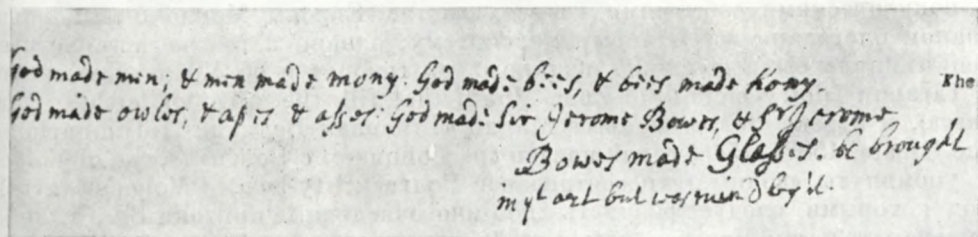 God made men; & men made mony: God made bees, & bees made hony.
God made owles, & apes & asses: God made Sir Jerome Bowes, & Sr Jerome
Bowes made Glasses. he brought
in yt art but was ruin'd by it.